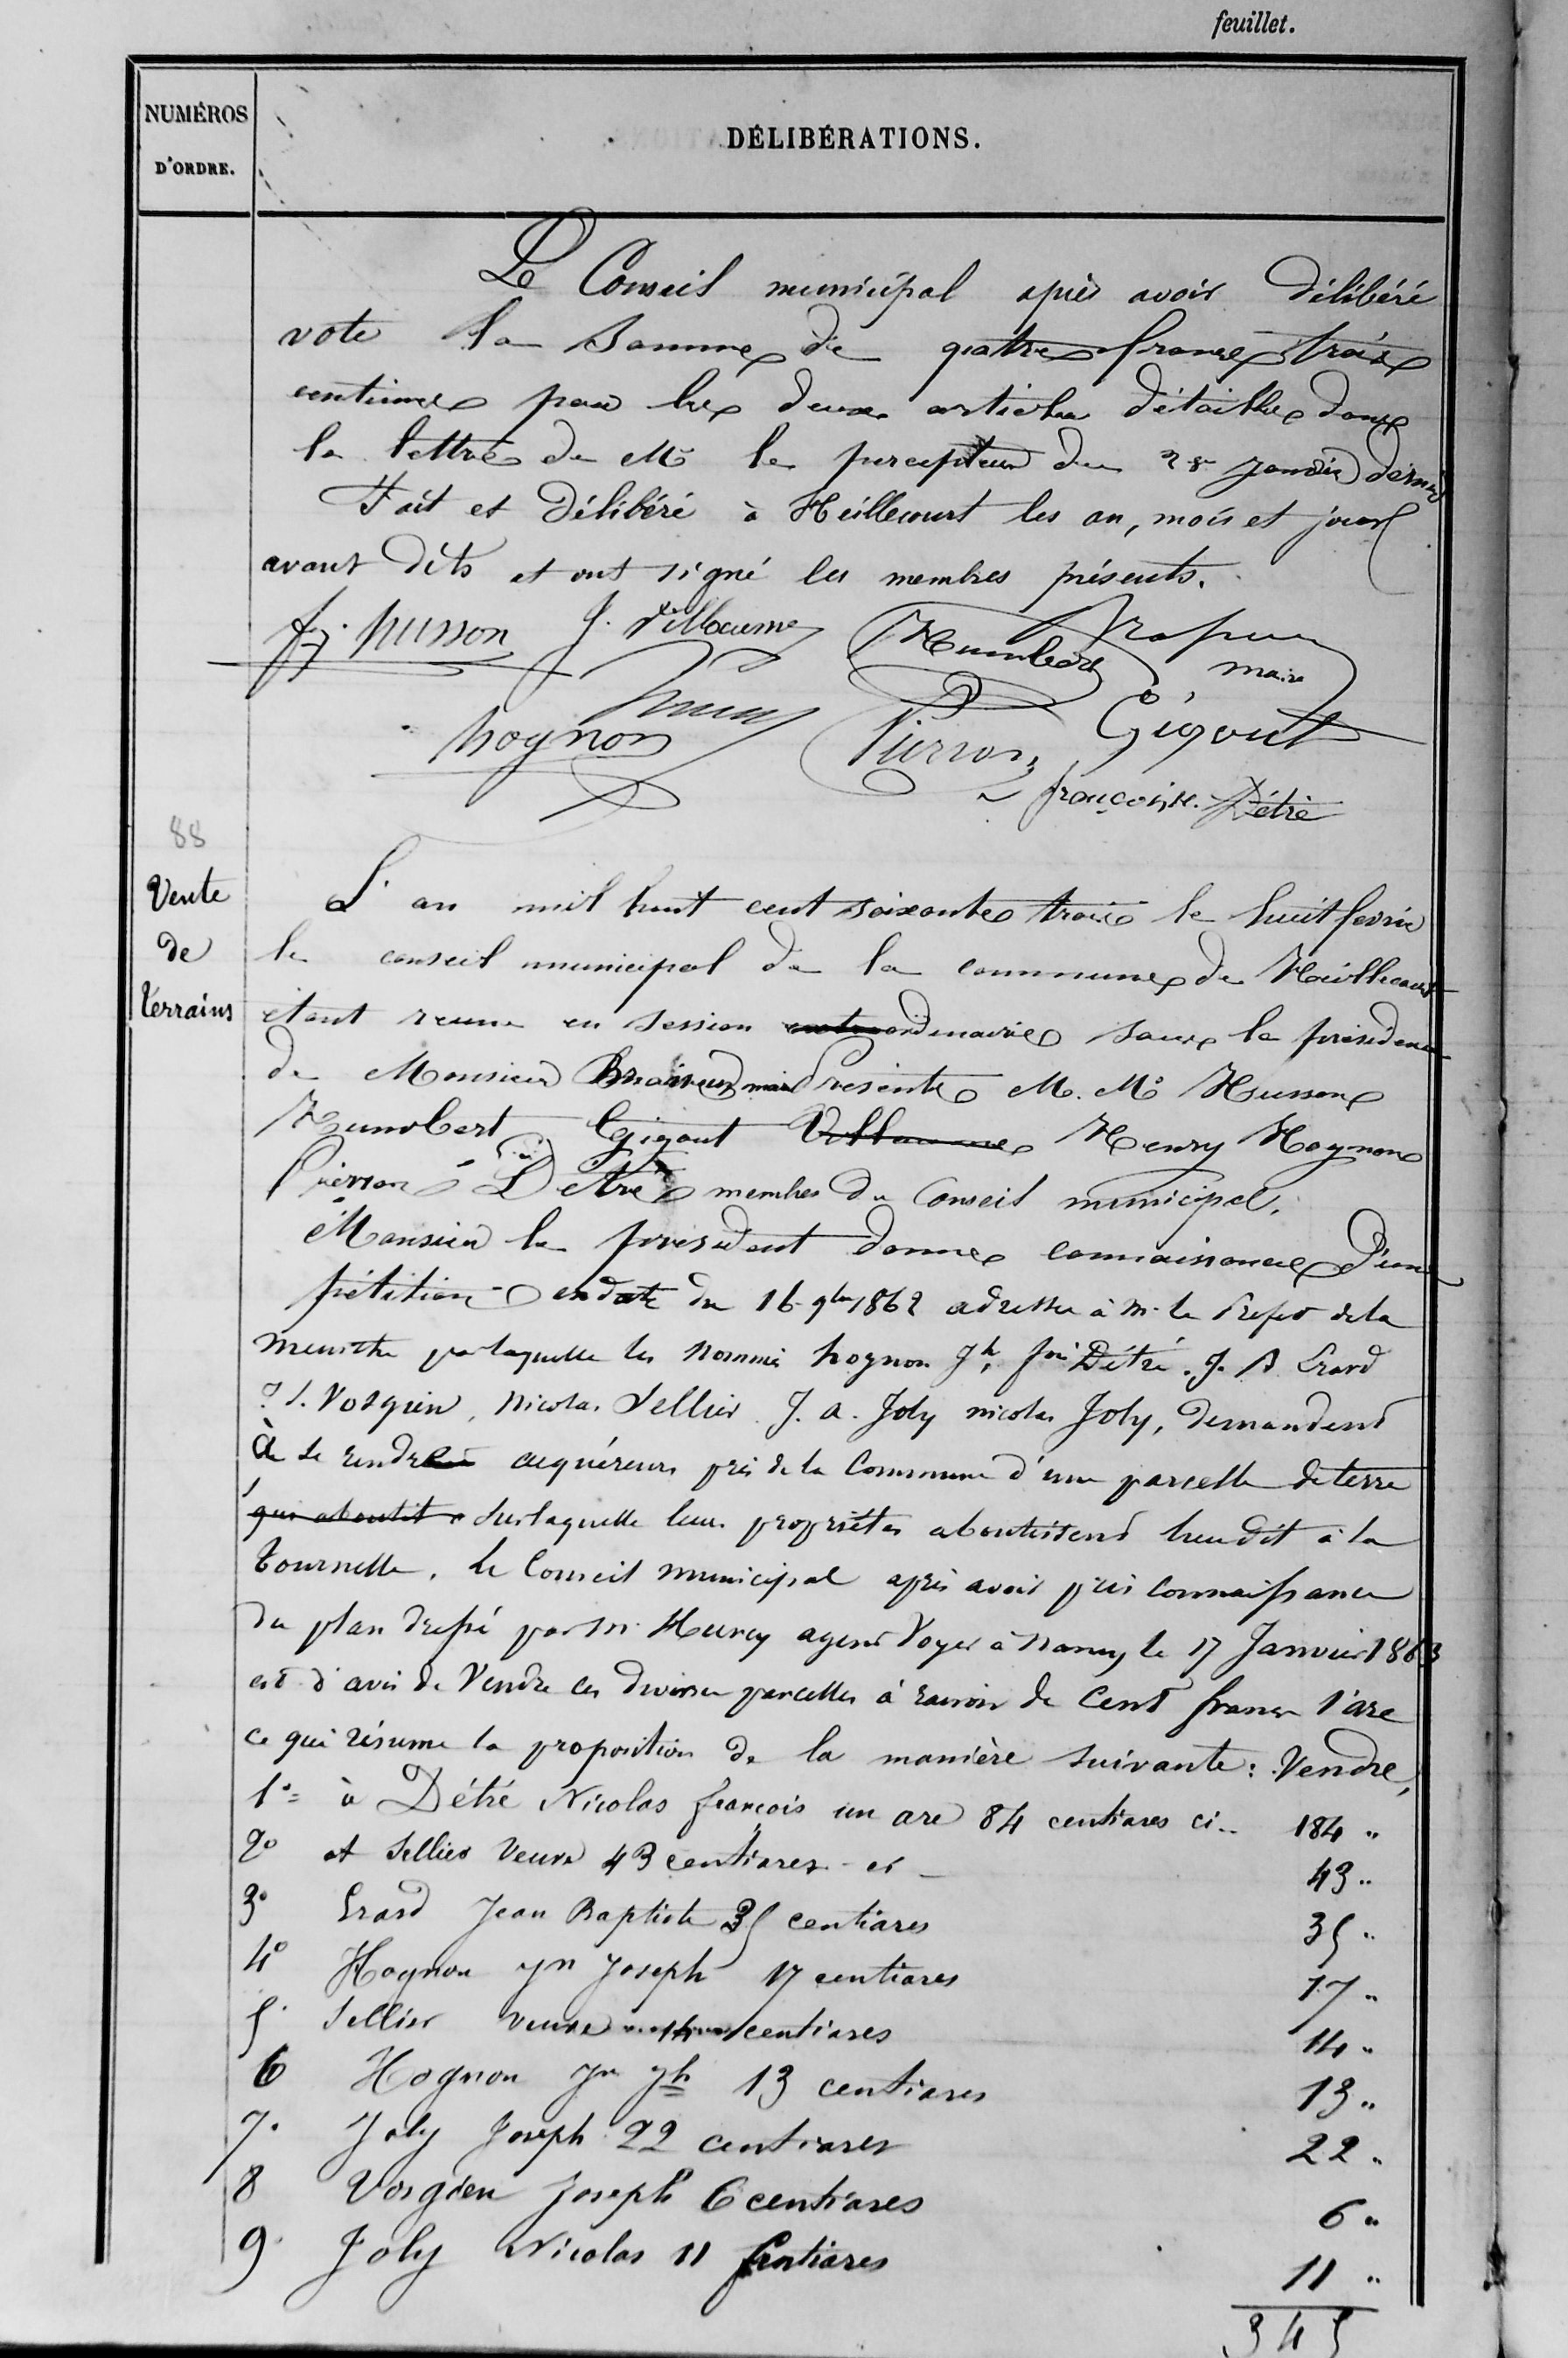 feuillet.
NUMÉROS
D'ORDRE.
DÉLIBÉRATIONS.
Le Conseil municipal après avoir délibéré
vote la Somme de quatre francs trois
centimes pour les deux articles détaillés dans
la lettre de Mr le percepteur du 28 janvier dernier
Fait et délibéré à Heillecourt les an, mois et jour
avant dits et ont signé les membres présents.
f. j. husson J. Villaume Humbert
maire
hognon Pierron Gigout
françois N. Détré
88
Vente
de
terrains
L'an mil huit cent soixante trois le huit fevrier
le conseil municipal de la commune de Heillecourt
étant reuni en session extraordinaire sous la présidence
de Monsieur maire Presents M. Mrs Husson
Humbert Gigout Villaume Henry Hognon
Pierron Détré membres du Conseil municipal.
Monsieur le président donne connaissance d'une
pétition en date du 16 9bre 1862 adressée à Mr le Prefet de la
Meurthe par laquelle les nommés hognon Jh, fois Détré, J. B Erard
Vosgien, Nicolas Sellier J. a. Joly nicolas Joly, demandent
à se rendre acquéreurs près de la Commune d'une parcelle de terre
qui aboutit à sur laquelle leurs propriétés aboutissent lieudit à la
tournelle. Le Conseil municipal après avoir pris connaissance
du plan dressé par Mr Henry agent Voyer à Nancy le 17 Janvier 1863
est d'avis de Vendre ces diverses parcelles à raison de Cent francs l'are
ce qui résume la proposition de la manière suivante : Vendre,
1° à Détré Nicolas françois un are 84 centiares ci.. 184 "
2° et Sellier veuve 43 centiares - ci - 43 "
3° Erard Jean Baptiste 35 centiares 35 "
4° Hognon Jn Joseph 17 centiares 17 "
5° Sellier veuve 14 centiares 14 "
6 Hognon Jn Jh 13 centiares 13 "
7° Joly Joseph 22 centiares 22 "
8 Vosgien Joseph 6 centiares 6 "
9° Joly Nicolas 11 Centiares 11 "
345